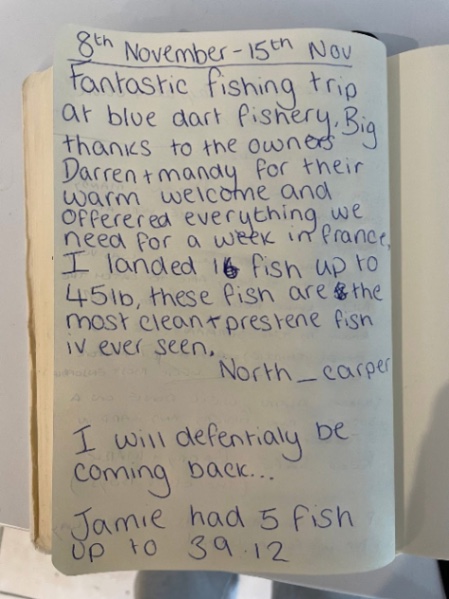 8th November - 15th Nov
Fantastic fishing trip
at blue dart fishery. Big
thanks to the owners
Darren + mandy for their
warm welcome and
offerered everything we
need for a week in france.
I landed 16 fish up to
45lb, these fish are the
most clean + prestene fish
iv ever seen.
North_carper
I will defentialy be
coming back...
Jamie had 5 fish
up to 39.12